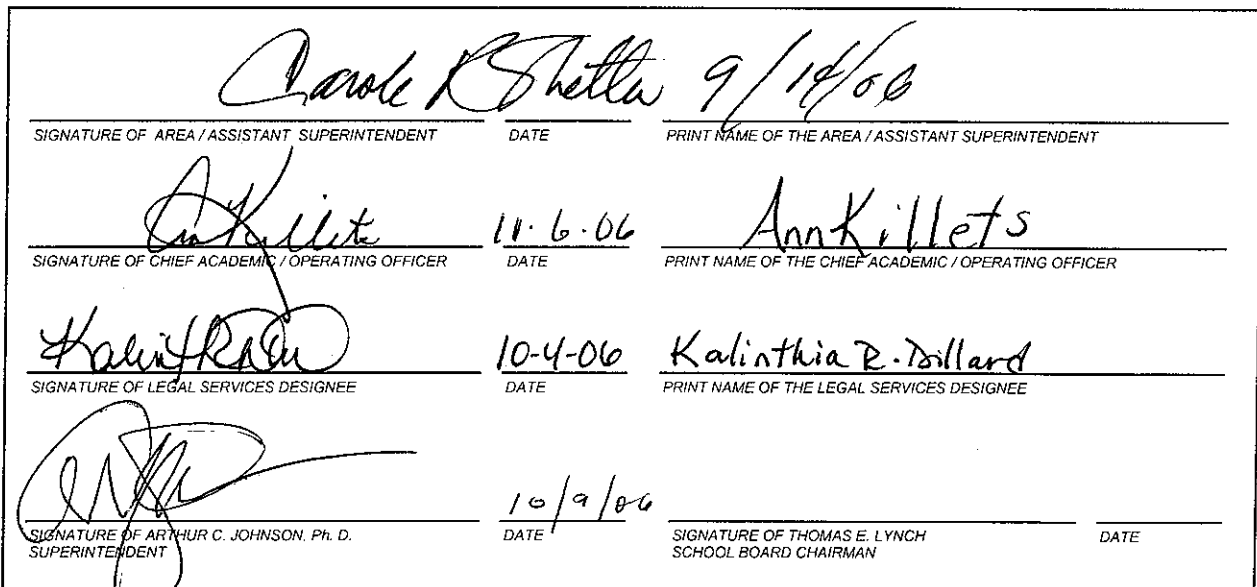 Carole R Shetler 9/14/06
SIGNATURE OF AREA / ASSISTANT SUPERINTENDENT DATE PRINT NAME OF THE AREA / ASSISTANT SUPERINTENDENT
Ann Killets 11-6-06 Ann Killets
SIGNATURE OF CHIEF ACADEMIC / OPERATING OFFICER DATE PRINT NAME OF THE CHIEF ACADEMIC / OPERATING OFFICER
10-4-06 Kalinthia R. Dillard
SIGNATURE OF LEGAL SERVICES DESIGNEE DATE PRINT NAME OF THE LEGAL SERVICES DESIGNEE
10/9/06
SIGNATURE OF ARTHUR C. JOHNSON, Ph. D. DATE SIGNATURE OF THOMAS E. LYNCH DATE
SUPERINTENDENT SCHOOL BOARD CHAIRMAN